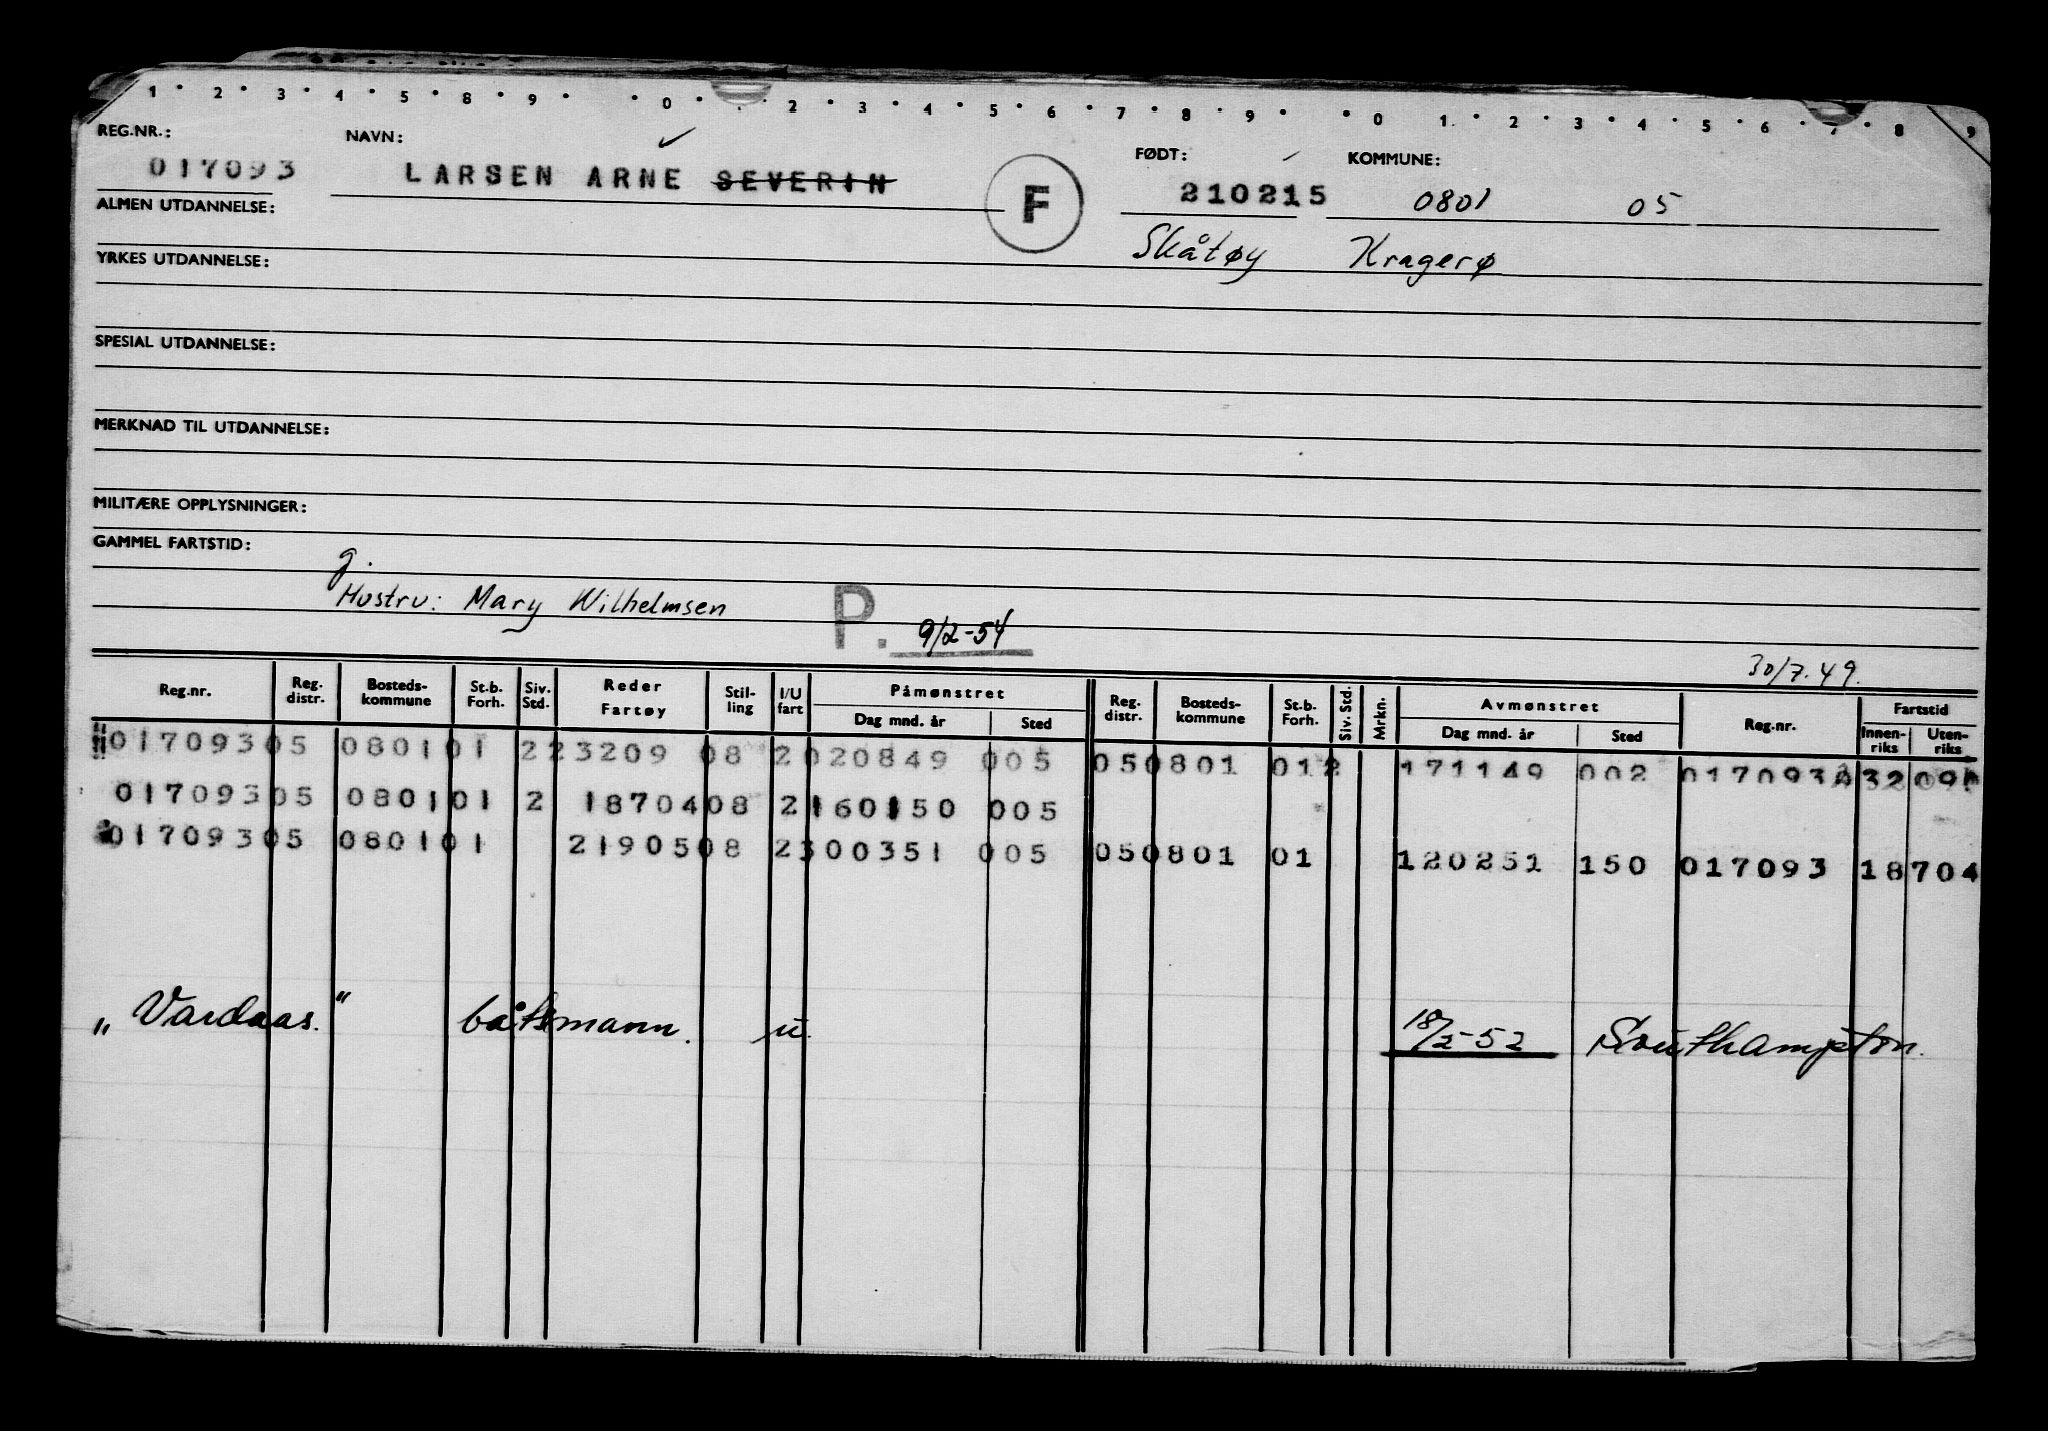 1 · 2 · 3 · 4 · 5 · 8 · 9 · · 0 · · 2 · 3 · 4 · 5 · 6 · 7 · 8 · 9 · · 0 1 · 2 · 3 · 4 · 5 · 6 · 7 · 8 9
REG.NR.: NAVN: FØDT: KOMMUNE:
017093 LARSEN ARNE SEVERIN F 210215 0801 05
ALMEN UTDANNELSE:
Skåtøy Kragerø
YRKES UTDANNELSE:
SPESIAL UTDANNELSE:
MERKNAD TIL UTDANNELSE:
MILITÆRE OPPLYSNINGER:
GAMMEL FARTSTID:
g.
Hustru: Mary Wilhelmsen P. 9/2-54
30/7.49.
Reg.nr. Reg. distr. Bosteds-kommune St.b. Forh. Siv. Std. Reder Fartøy Stil-ling I/U fart Påmønstret Dag mnd. år Sted Reg. distr. Bosteds-kommune St.b. Forh. Siv. Std. Mrkn. Avmønstret Dag mnd. år Sted Reg.nr. Fartstid Innen-riks Uten-riks
017093 05 0801 01 2 23209 08 2 020849 005 05 0801 01 2 171149 002 017093
017093 05 0801 01 2 18704 08 2 160150 005
017093 05 0801 01 21905 08 2 300351 005 05 0801 01 120251 150 017093 18704
„Vardaas." båtsmann. u. 18/2-52 Southampton.